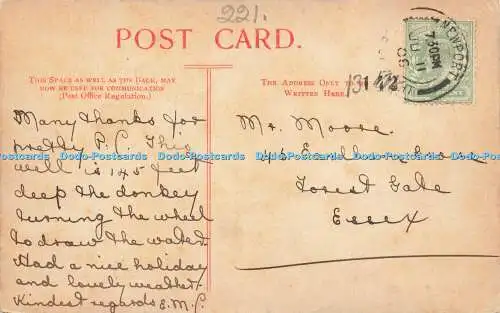 221.
POST CARD.
THIS SPACE AS WELL AS THE BACK, MAY
NOW BE USED FOR COMMUNICATION
(Post Office Regulation.)
THE ADDRESS ONLY TO BE
WRITTEN HERE.
NEWPORT
7 30 PM
Many thanks for
pretty P.C. This
well is 145 feet
deep the donkey
turning the wheel
to draw the water.
Had a nice holiday
and lovely weather.
Kindest regards E.M.C.
Mr. Moore.
Forest Gate
Essex
Dodo-Postcards Dodo-Postcards Dodo-Postcards Dodo-Postcards Dodo-Postcards